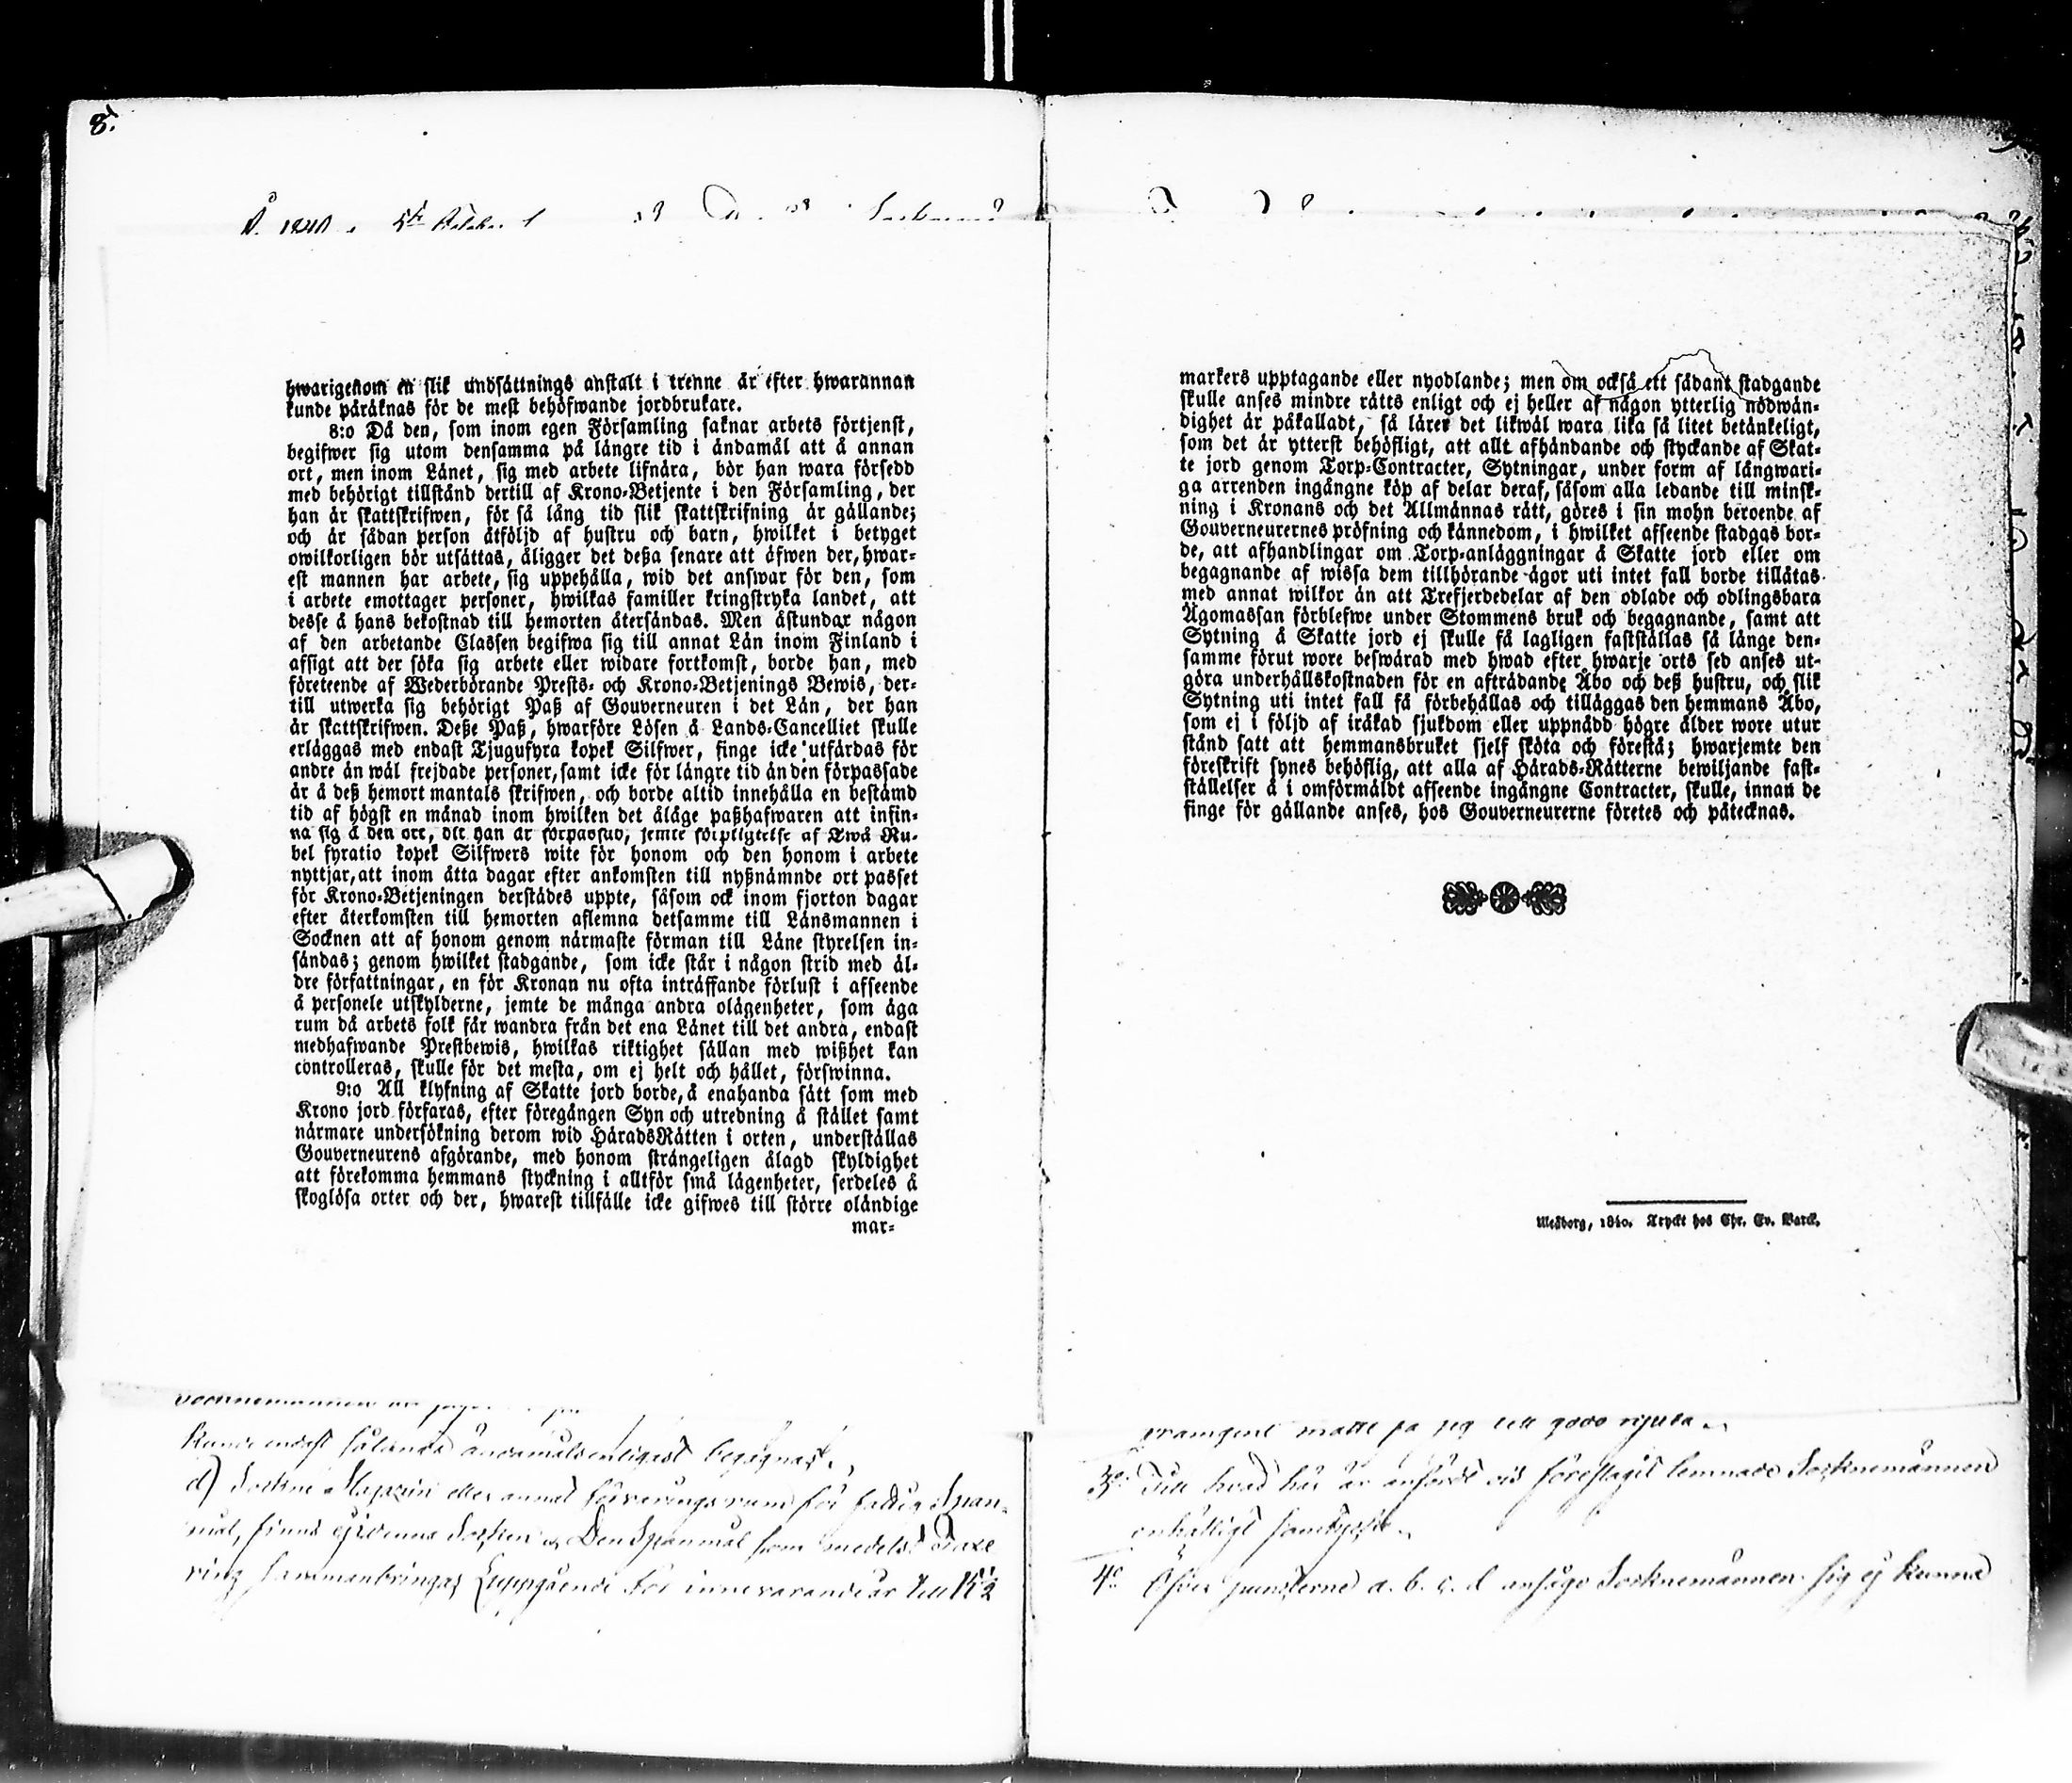 8.
Å 1840 5te October
Socknemä
hwarigenom en slik undsättnings anstalt i trenne år efter hwarannan
kunde påräknas för de mest behöfwande jordbrukare.
8:o Då den, som inom egen Församling saknar arbets förtjenst,
begifwer sig utom densamma på längre tid i ändamål att å annan
ort, men inom Länet, sig med arbete lifnära, bör han wara försedd
med behörigt tillstånd dertill af Krono-Betjente i den Församling, der
han är skattskrifwen, för så lång tid slik skattskrifning är gällande;
och är sådan person åtföljd af hustru och barn, hwilket i betyget
owilkorligen bör utsättas, åligger det deßa senare att äfwen der, hwar-
est mannen har arbete, sig uppehålla, wid det answar för den, som
i arbete emottager personer, hwilkas familler kringstryka landet, att
desse å hans bekostnad till hemorten återsändas. Men åstundar någon
af den arbetande Classen begifwa sig till annat Län inom Finland i
afsigt att der söka sig arbete eller widare fortkomst, borde han, med
företeende af Wederbörande Prests- och Krono-Betjenings Bewis, der-
till utwerka sig behörigt Paß af Gouverneuren i det Län, der han
är skattskrifwen. Deße Paß, hwarföre Lösen å Lands-Cancelliet skulle
erläggas med endast Tjugufyra kopek Silfwer, finge icke utfärdas för
andre än wäl frejdade personer, samt icke för längre tid än den förpassade
är å deß hemort mantals skrifwen, och borde altid innehålla en bestämd
tid af högst en månad inom hwilken det ålåge paßhafwaren att infin-
na sig å den ort, dit han är förpassad, jemte förpligtelse af Twå Ru-
bel fyratio kopek Silfwers wite för honom och den honom i arbete
nyttjar, att inom åtta dagar efter ankomsten till nyßnämnde ort passet
för Krono-Betjeningen derstädes uppte, såsom ock inom fjorton dagar
efter återkomsten till hemorten aflemna detsamme till Länsmannen i
Socknen att af honom genom närmaste förman till Läne styrelsen in-
sändas; genom hwilket stadgande, som icke står i någon strid med äl-
dre författningar, en för Kronan nu ofta inträffande förlust i afseende
å personele utskylderne, jemte de många andra olägenheter, som äga
rum då arbets folk får wandra från det ena Länet till det andra, endast
medhafwande Prestbewis, hwilkas riktighet sällan med wißhet kan
controlleras, skulle för det mesta, om ej helt och hållet, förswinna.
9:o All klyfning af Skatte jord borde, å enahanda sätt som med
Krono jord förfaras, efter föregången Syn och utredning å stället samt
närmare undersökning derom wid HäradsRätten i orten, underställas
Gouverneurens afgörande, med honom strängeligen ålagd skyldighet
att förekomma hemmans styckning i alltför små lägenheter, serdeles å
skoglösa orter och der, hwarest tillfälle icke gifwes till större oländige
mar-
kunde endast sålunda ändamålsenligast begagnas.
d) Sockne Magazin eller annat förvarings rum för fattig Span-
mål, finns ej i denna Socken. Den Spanmål som medelst Taxe
ring sammanbringas (uppgående för innevarande år till 15½
markers upptagande eller nyodlande; men om också ett sådant stadgande
skulle anses mindre rätts enligt och ej heller af någon ytterlig nödwän-
dighet är påkalladt, så lärer det likwäl wara lika så litet betänkeligt,
som det är ytterst behöfligt, att allt afhändande och styckande af Skat-
te jord genom Torp-Contracter, Sytningar, under form af långwari-
ga arrenden ingångne köp af delar deraf, såsom alla ledande till minsk-
ning i Kronans och det Allmännas rätt, göres i sin mohn beroende af
Gouverneurernes pröfning och kännedom, i hwilket afseende stadgas bor-
de, att afhandlingar om Torp-anläggningar å Skatte jord eller om
begagnande af wissa dem tillhörande ägor uti intet fall borde tillåtas
med annat wilkor än att Trefjerdedelar af den odlade och odlingsbara
Ägomassan förblefwe under Stommens bruk och begagnande, samt att
Sytning å Skatte jord ej skulle få lagligen fastställas så länge den-
samme förut wore beswärad med hwad efter hwarje orts sed anses ut-
göra underhållskostnaden för en afträdande Åbo och deß hustru, och slik
Sytning uti intet fall få förbehållas och tilläggas den hemmans Åbo,
som ej i följd af iråkad sjukdom eller uppnådd högre ålder wore utur
stånd satt att hemmansbruket sjelf sköta och förestå; hwarjemte den
föreskrift synes behöflig, att alla af Härads-Rätterne bewiljande fast-
ställelser å i omförmäldt afseende ingångne Contracter, skulle, innan de
finge för gällande anses, hos Gouverneurerne företes och påtecknas.
Wiborg, 1840. Tryckt hos Chr. Ev. Barck.
framgent måtte få sig till godo njuta.
3o Till hvad här är anfördt och föreslagit lemnade Socknemännen
enhälligt samtycke.
4o Öfver puncterne a. b. c. d ansågo Socknemännen sig ej kunna